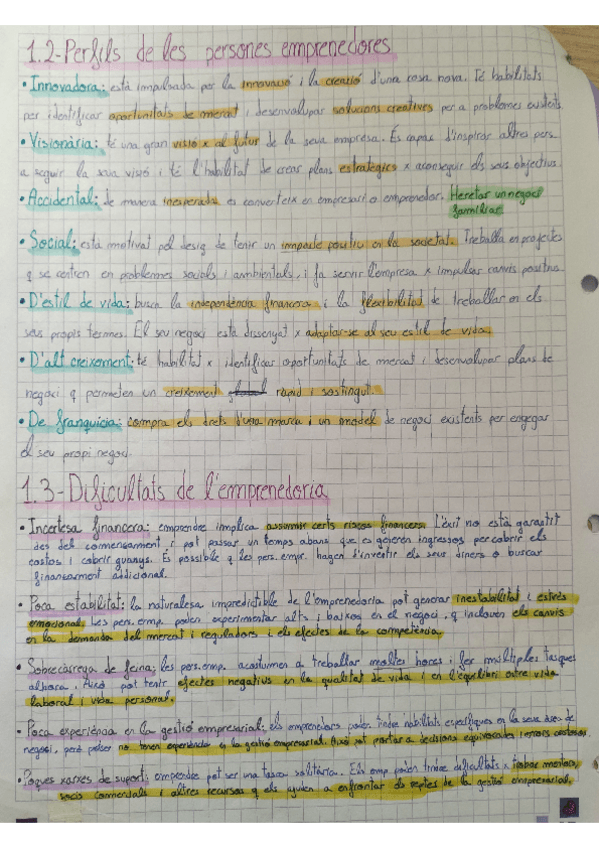 1.2-Perfils de les persones emprenedores
• Innovadora: està impulsada per la innovació i la creació d'una cosa nova. Té habilitats
per identificar oportunitats de mercat i desenvolupar solucions creatives per a problemes existents.
• Visionària: té una gran visió x al futur de la seua empresa. És capaç d'inspirar altres pers.
a seguir la seua visió i té l'habilitat de crear plans estratègics x aconseguir els seus objectius.
• Accidental: de manera inesperada es converteix en empresari o emprenedor. Heretar un negoci
familiar.
• Social: està motivat pel desig de tenir un impacte positiu en la societat. Treballa en projectes
q se centren en problemes socials i ambientals, i fa servir l'empresa x impulsar canvis positius.
• D'estil de vida: busca la independència financera i la flexibilitat de treballar en els
seus propis termes. El seu negoci està dissenyat x adaptar-se al seu estil de vida.
• D'alt creixement: té habilitat x identificar oportunitats de mercat i desenvolupar plans de
negoci q permeten un creixement ràpid i sostingut.
• De franquícia: compra els drets d'una marca i un model de negoci existents per engegar
el seu propi negoci.
1.3-Dificultats de l'emprenedoria
• Incertesa financera: emprendre implica assumir certs riscos financers. L'èxit no està garantit
des del començament i pot passar un temps abans que es generen ingressos per cobrir els
costos i cobrir guanys. És possible q les pers. empr. hagen d'invertir els seus diners o buscar
finançament addicional.
• Poca estabilitat: la naturalesa impredictible de l'emprenedoria pot generar inestabilitat i estrés
emocional. Les pers. emp. poden experimentar alts i baixos en el negoci, q inclouen els canvis
en la demanda del mercat i reguladors i els efectes de la competència.
• Sobrecàrrega de feina: les pers. emp. acostumen a treballar moltes hores i fer múltiples tasques
alhora. Això pot tenir efectes negatius en la qualitat de vida i en l'equilibri entre vida
laboral i vida personal.
• Poca experiència en la gestió empresarial: els emprenedors poden tindre habilitats específiques en la seua àrea de
negoci, però potser no tenen experiència en la gestió empresarial. Això pot portar a decisions equivocades i errors costosos.
• Poques xarxes de suport: emprendre pot ser una tasca solitària. Els emp. poden tindre dificultats x trobar mentors,
socis comercials i altres recursos q els ajuden a enfrontar els reptes de la gestió empresarial.